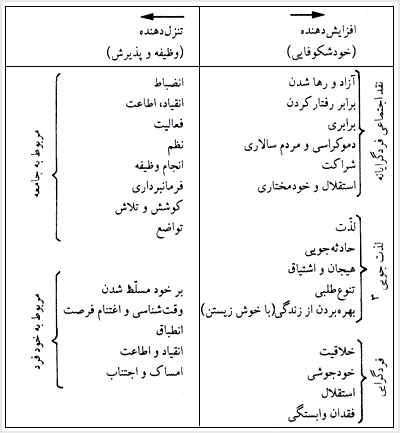 افزایش‌دهنده
(خودشکوفایی)
نقد اجتماعی فردگرایانه
آزاد و رها شدن
برابر رفتارکردن
برابری
دموکراسی و مردم سالاری
شراکت
استقلال و خودمختاری
لذت جویی ۳
لذّت
حادثه‌جویی
هیجان و اشتیاق
تنوع‌طلبی
بهره‌بردن از زندگی(با خوش زیستن)
فردگرایی
خلاقیت
خودجوشی
استقلال
فقدان وابستگی
تنزل‌دهنده
(وظیفه و پذیرش)
مربوط به جامعه
انضباط
انقیاد، اطاعت
فعالیت
نظم
انجام وظیفه
فرمانبرداری
کوشش و تلاش
تواضع
مربوط به خود فرد
بر خود مسلّط شدن
وقت‌شناسی و اغتنام فرصت
انطباق
انقیاد و اطاعت
امساک و اجتناب